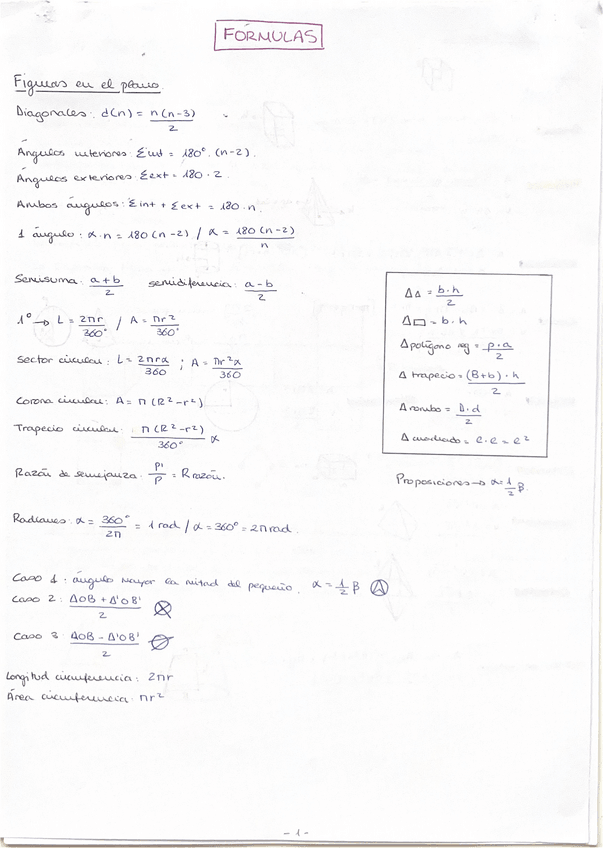 FÓRMULAS
Figuras en el plano.
Diagonales: d(n) = n(n-3)/2
Ángulos interiores: Σint = 180°. (n-2).
Ángulos exteriores: Σext = 180 · 2.
Ambos ángulos: Σint + Σext = 180·n.
1 ángulo: α·n = 180(n-2) / α = 180(n-2)/n
Semisuma: a+b/2 semidiferencia: a-b/2
1° → L = 2πr/360° / A = πr²/360°
Sector circular: L = 2πrα/360 ; A = πr²α/360
Corona circular: A = π(R²-r²)
Trapecio circular: π(R²-r²)/360° α
Razón de semejanza: P'/P = R razón.
Radianes: α = 360°/2π = 1 rad / α = 360° = 2π rad.
A△ = b·h/2
A▭ = b·h
A polígono reg = p·a/2
A trapecio = (B+b)·h/2
A rombo = D·d/2
A cuadrado = e·e = e²
Proposiciones → α = 1/2 β.
Caso 1: ángulo mayor la mitad del pequeño. α = 1/2 β
Caso 2: AOB + A'OB'/2
Caso 3 AOB - A'OB'/2
Longitud circunferencia: 2πr
Área circunferencia: πr²
- 1 -